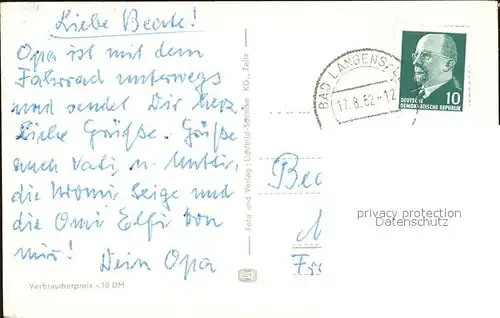 Liebe Beate!
Opa ist mit dem
Fahrrad unterwegs
und sendet Dir herz-
liche Grüße. Grüße
auch Vati u. Mutti,
die und
die Omi Elfi von
mir!
Dein Opa
Verbraucherpreis -.10 DM
Foto und Verlag: Lichtbild-Schincke KG., Zeitz
BAD LANGENS
17.8.62-12
10
DEUTSCHE
DEMOKRATISCHE REPUBLIK
Be
privacy protection
Datenschutz